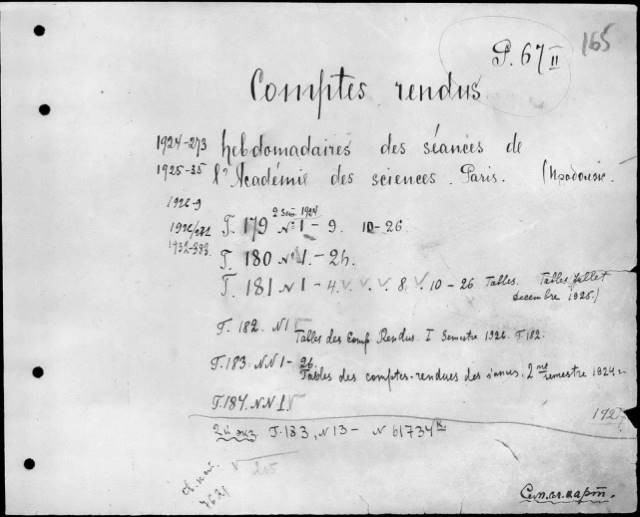 165
P. 67 II
Comptes rendus
1924-273 hebdomadaires des séances de
1925-35 l'Académie des sciences. Paris. (Продолж.
1926-9
T. 179 2 Sem 1924 N: 1 - 9. 10-26.
T. 180 N: 1. - 26.
T. 181 N 1 - 4. V. V. V. 8. V. 10 - 26 Tables. Tables Juillet
Decembre 1925.)
T. 182. N 1
Tables des Comp. Rendus. I Semestre 1926. T. 182.
T. 183. N N 1 - 26
Tables des comptes-rendues des 2 me semestre 1924
T. 184. N N 1
1927
2й экз. T. 183, N 13 - N 61734
205
См. гл. карт.